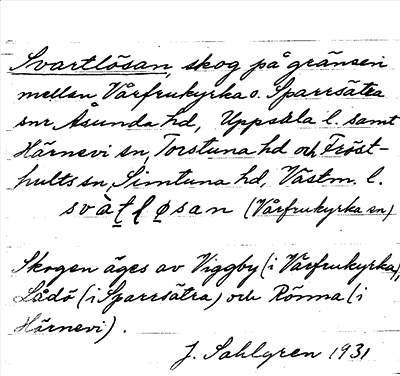 Svartlösan, skog på gränsen
mellan Vårfrukyrka o. Sparrsätra
snr Åsunda hd, Uppsala l. samt
Härnevi sn, Torstuna hd och Fröst-
hults sn, Simtuna hd, Västm. l.
svàt̠ł ø̠san (Vårfrukyrka sn)
Skogen äges av Viggby (i Vårfrukyrka),
Lådö (i Sparrsätra) och Rönna (i
Härnevi).
J. Sahlgren 1931